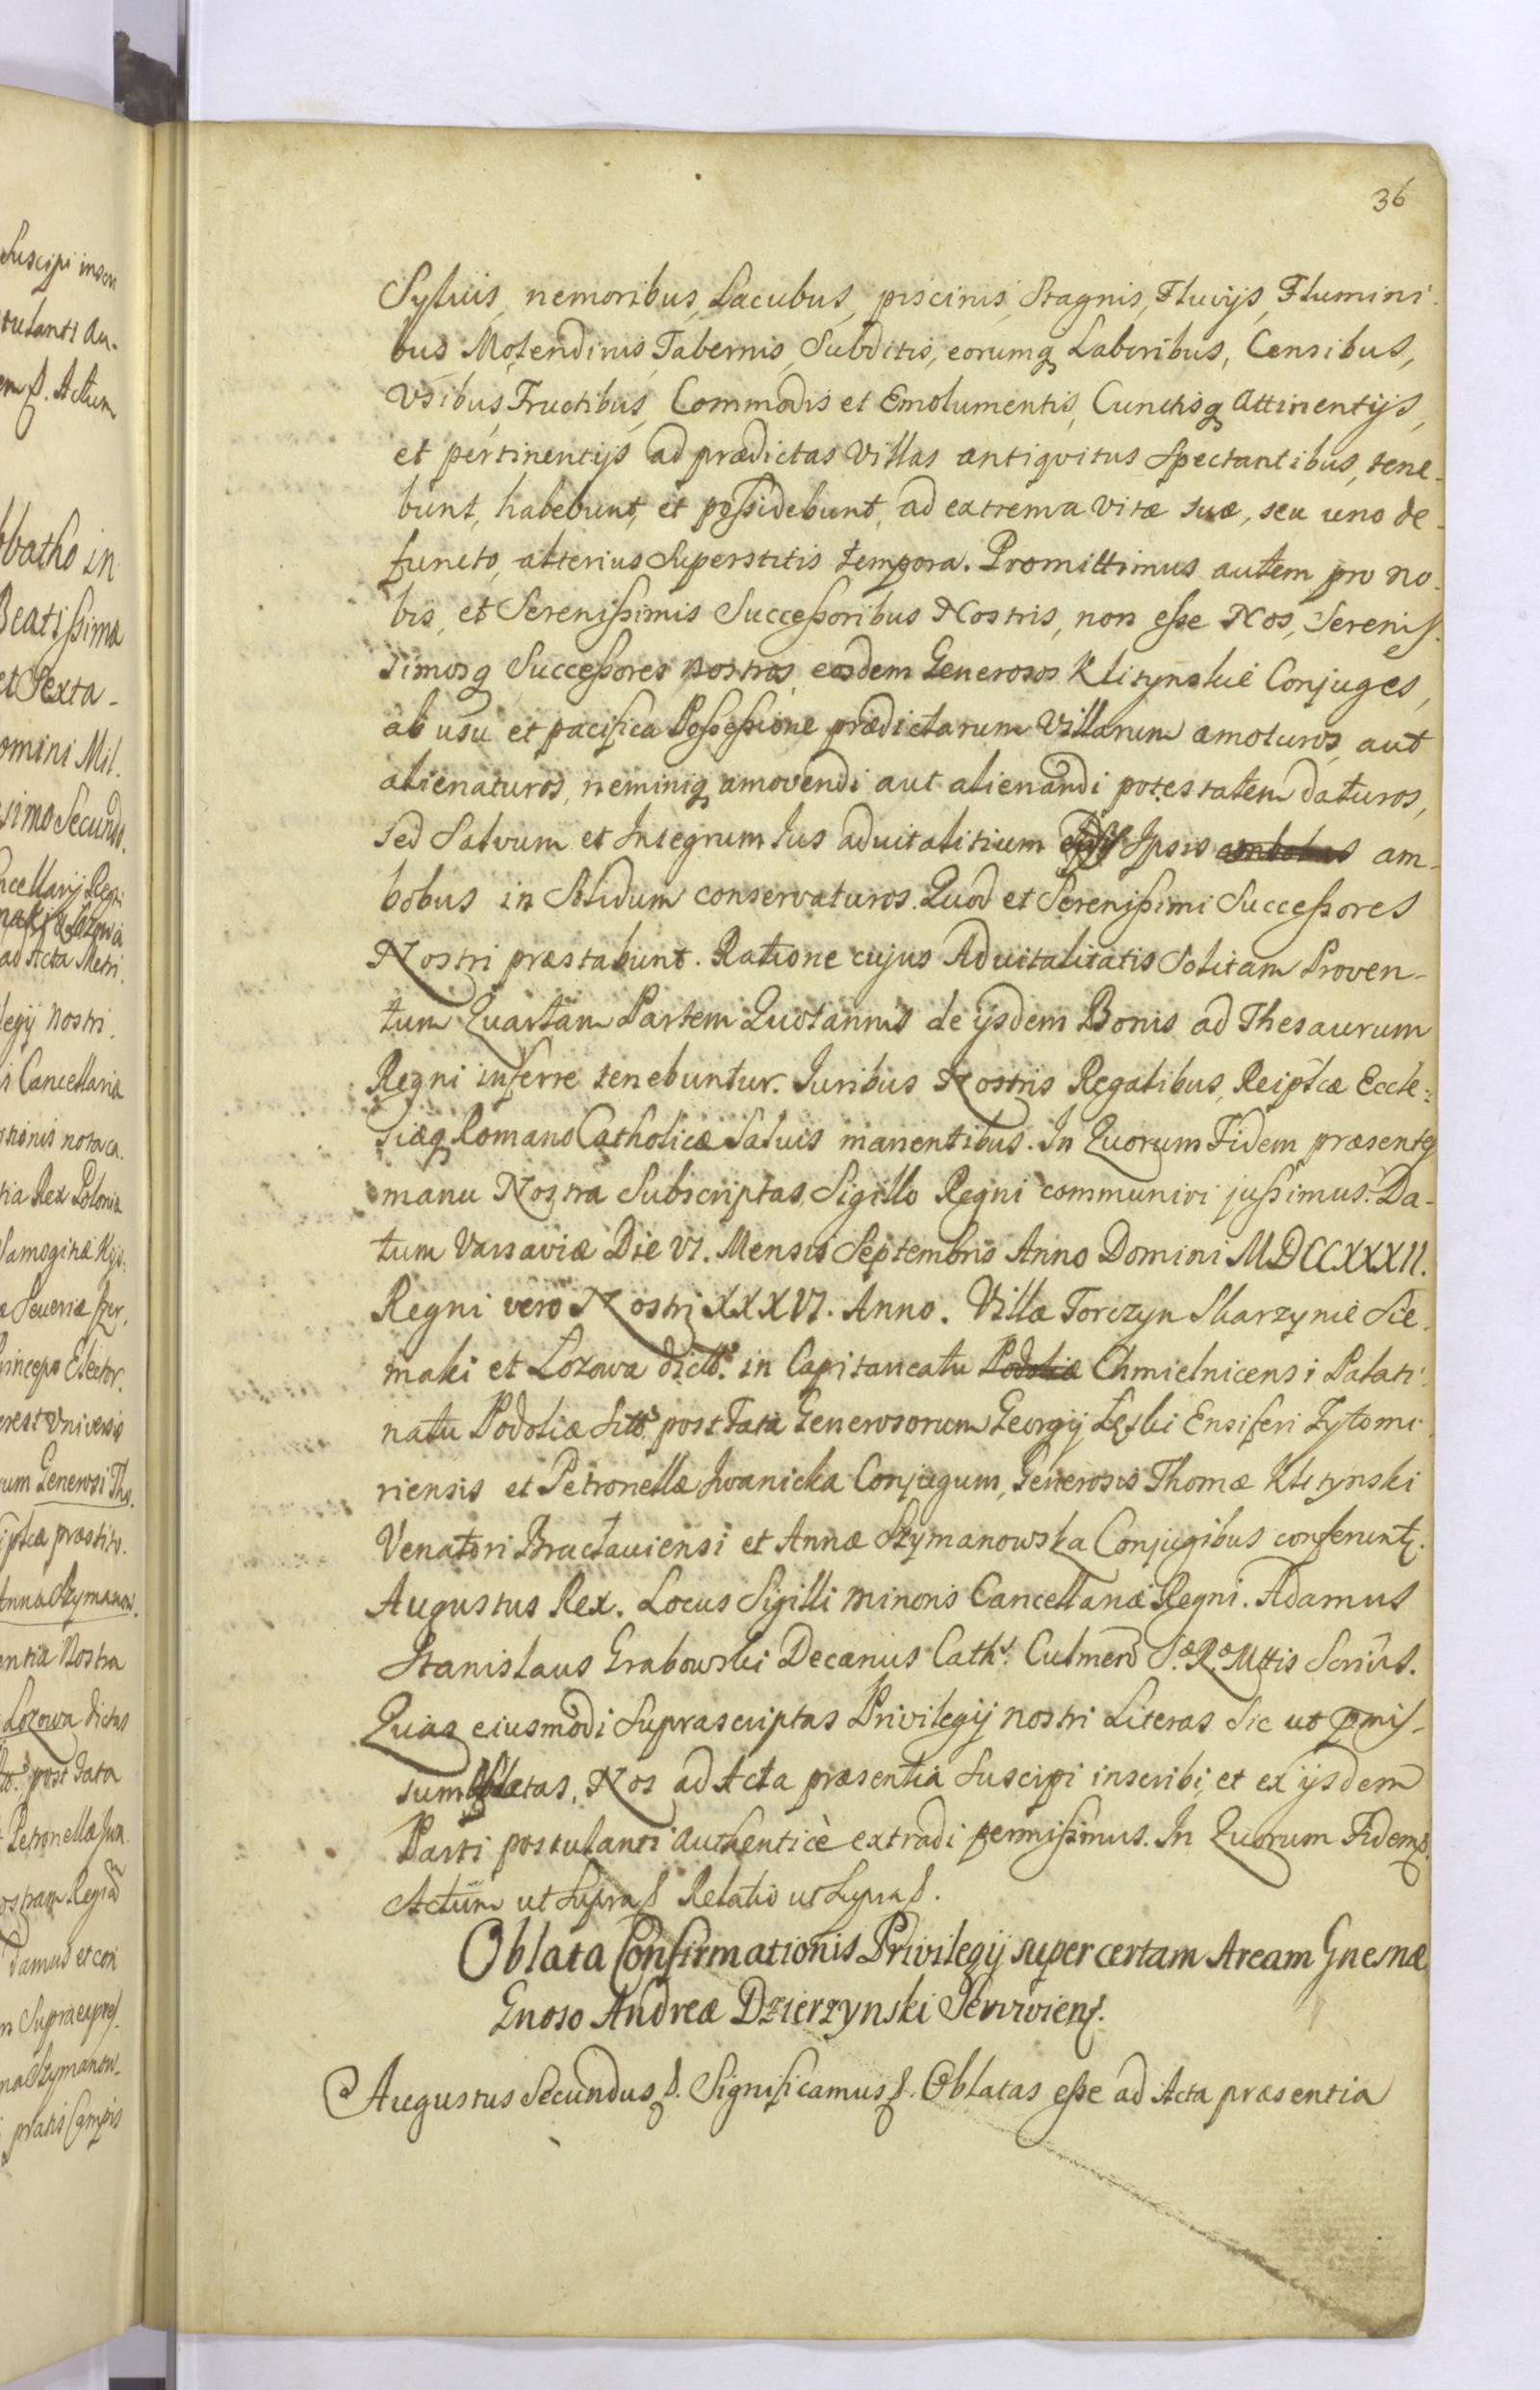 36
Sylvis, nemoribus, Lacubus, piscinis, Stagnis, Fluvijs, Flumini-
bus Molendinis Tabernis, Subditis, eorumq Laboribus, Censibus,
Usibus, Fructibus, Commodis et Emolumentis, Cunctisq Attinentijs,
et pertinentijs ad prædictas Villas antiqvitus Spectantibus, tene-
bunt, habebunt, et possidebunt, ad extrema vitæ suæ, seu uno de-
functo, alterius Superstitis tempora. Promittimus autem pro no-
bis, et Serenissimis Successoribus Nostris, non esse Nos, Serenis-
simosq Successores nostros, eosdem Generosos Klitynskie Conjuges,
ab usu et pacifica Possessione prædictarum Villarum amoturos, aut
alienaturos, neminiq amovendi aut alienandi potestatem daturos,
Sed Salvum et Integrum Jus advitalitium Ipsis am-
bobus in Solidum conservaturos. Quod et Serenissimi Successores
Nostri præstabunt. Ratione cujus Advitalitatis Solitam Proven-
tum Quartam Partem Quotannis de ijsdem Bonis ad Thesaurum
Regni inferre tenebuntur. Juribus Nostris Regalibus, Reiptcæ Eccle-
siæq Romano Catholicæ Salvis manentibus. In Quorum Fidem præsentes
manu Nostra Subscriptas, Sigillo Regni communiri jussimus. Da-
tum Varsaviæ Die VI. Mensis Septembris Anno Domini MDCCXXXII.
Regni vero Nostri XXXVI. Anno. Villa Torczyn Skarzynie Sie-
maki et Lozowa dict: in Capitaneatu Podoliæ Chmielnicensi Palati-
natu Podoliæ sit: post Fata Generosorum Georgij Łęski Ensiferi Zytomi-
riensis et Petronellæ Iwanicka Conjugum, Generosis Thomæ Klitynski
Venatori Bractaviensi et Annæ Szymanowska Conjugibus conferunt.
Augustus Rex. Locus Sigilli minoris Cancellariæ Regni. Adamus
Stanislaus Grabowski Decanus Cath: Culmen S. R. Mttis Scrius.
Quas eiusmodi Suprascriptas Privilegij nostri Literas Sic ut pmis-
sum Oblatas, Nos ad Acta præsentia Suscipi inscribi, et ex ijsdem
Parti postulanti authenticè extradi permisimus. In Quorum Fidem
Actum ut Supra Relatio ut Supra.
Oblata Confirmationis Privilegij super certam Aream Gnesnæ
Gnoso Andreæ Dzierzynski Servien.
Augustus Secundus. Significamus. Oblatas esse ad Acta præsentia